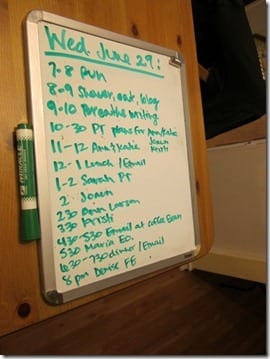 Wed June 29:
7-8 run
8-9 Shower, eat, blog
9-10 Breathe Writing
10-30 PT plans for Ann/Katie
11-12 Ann/Katie Joann
Kristi
12-1 Lunch/Email
1-2 Sarah PT
2 Joann
230 Ann Larson
330 Kristi
430-530 Email at coffee Bean
530 Maria Eo.
630-730 dinner/Email
8pm Denise FE